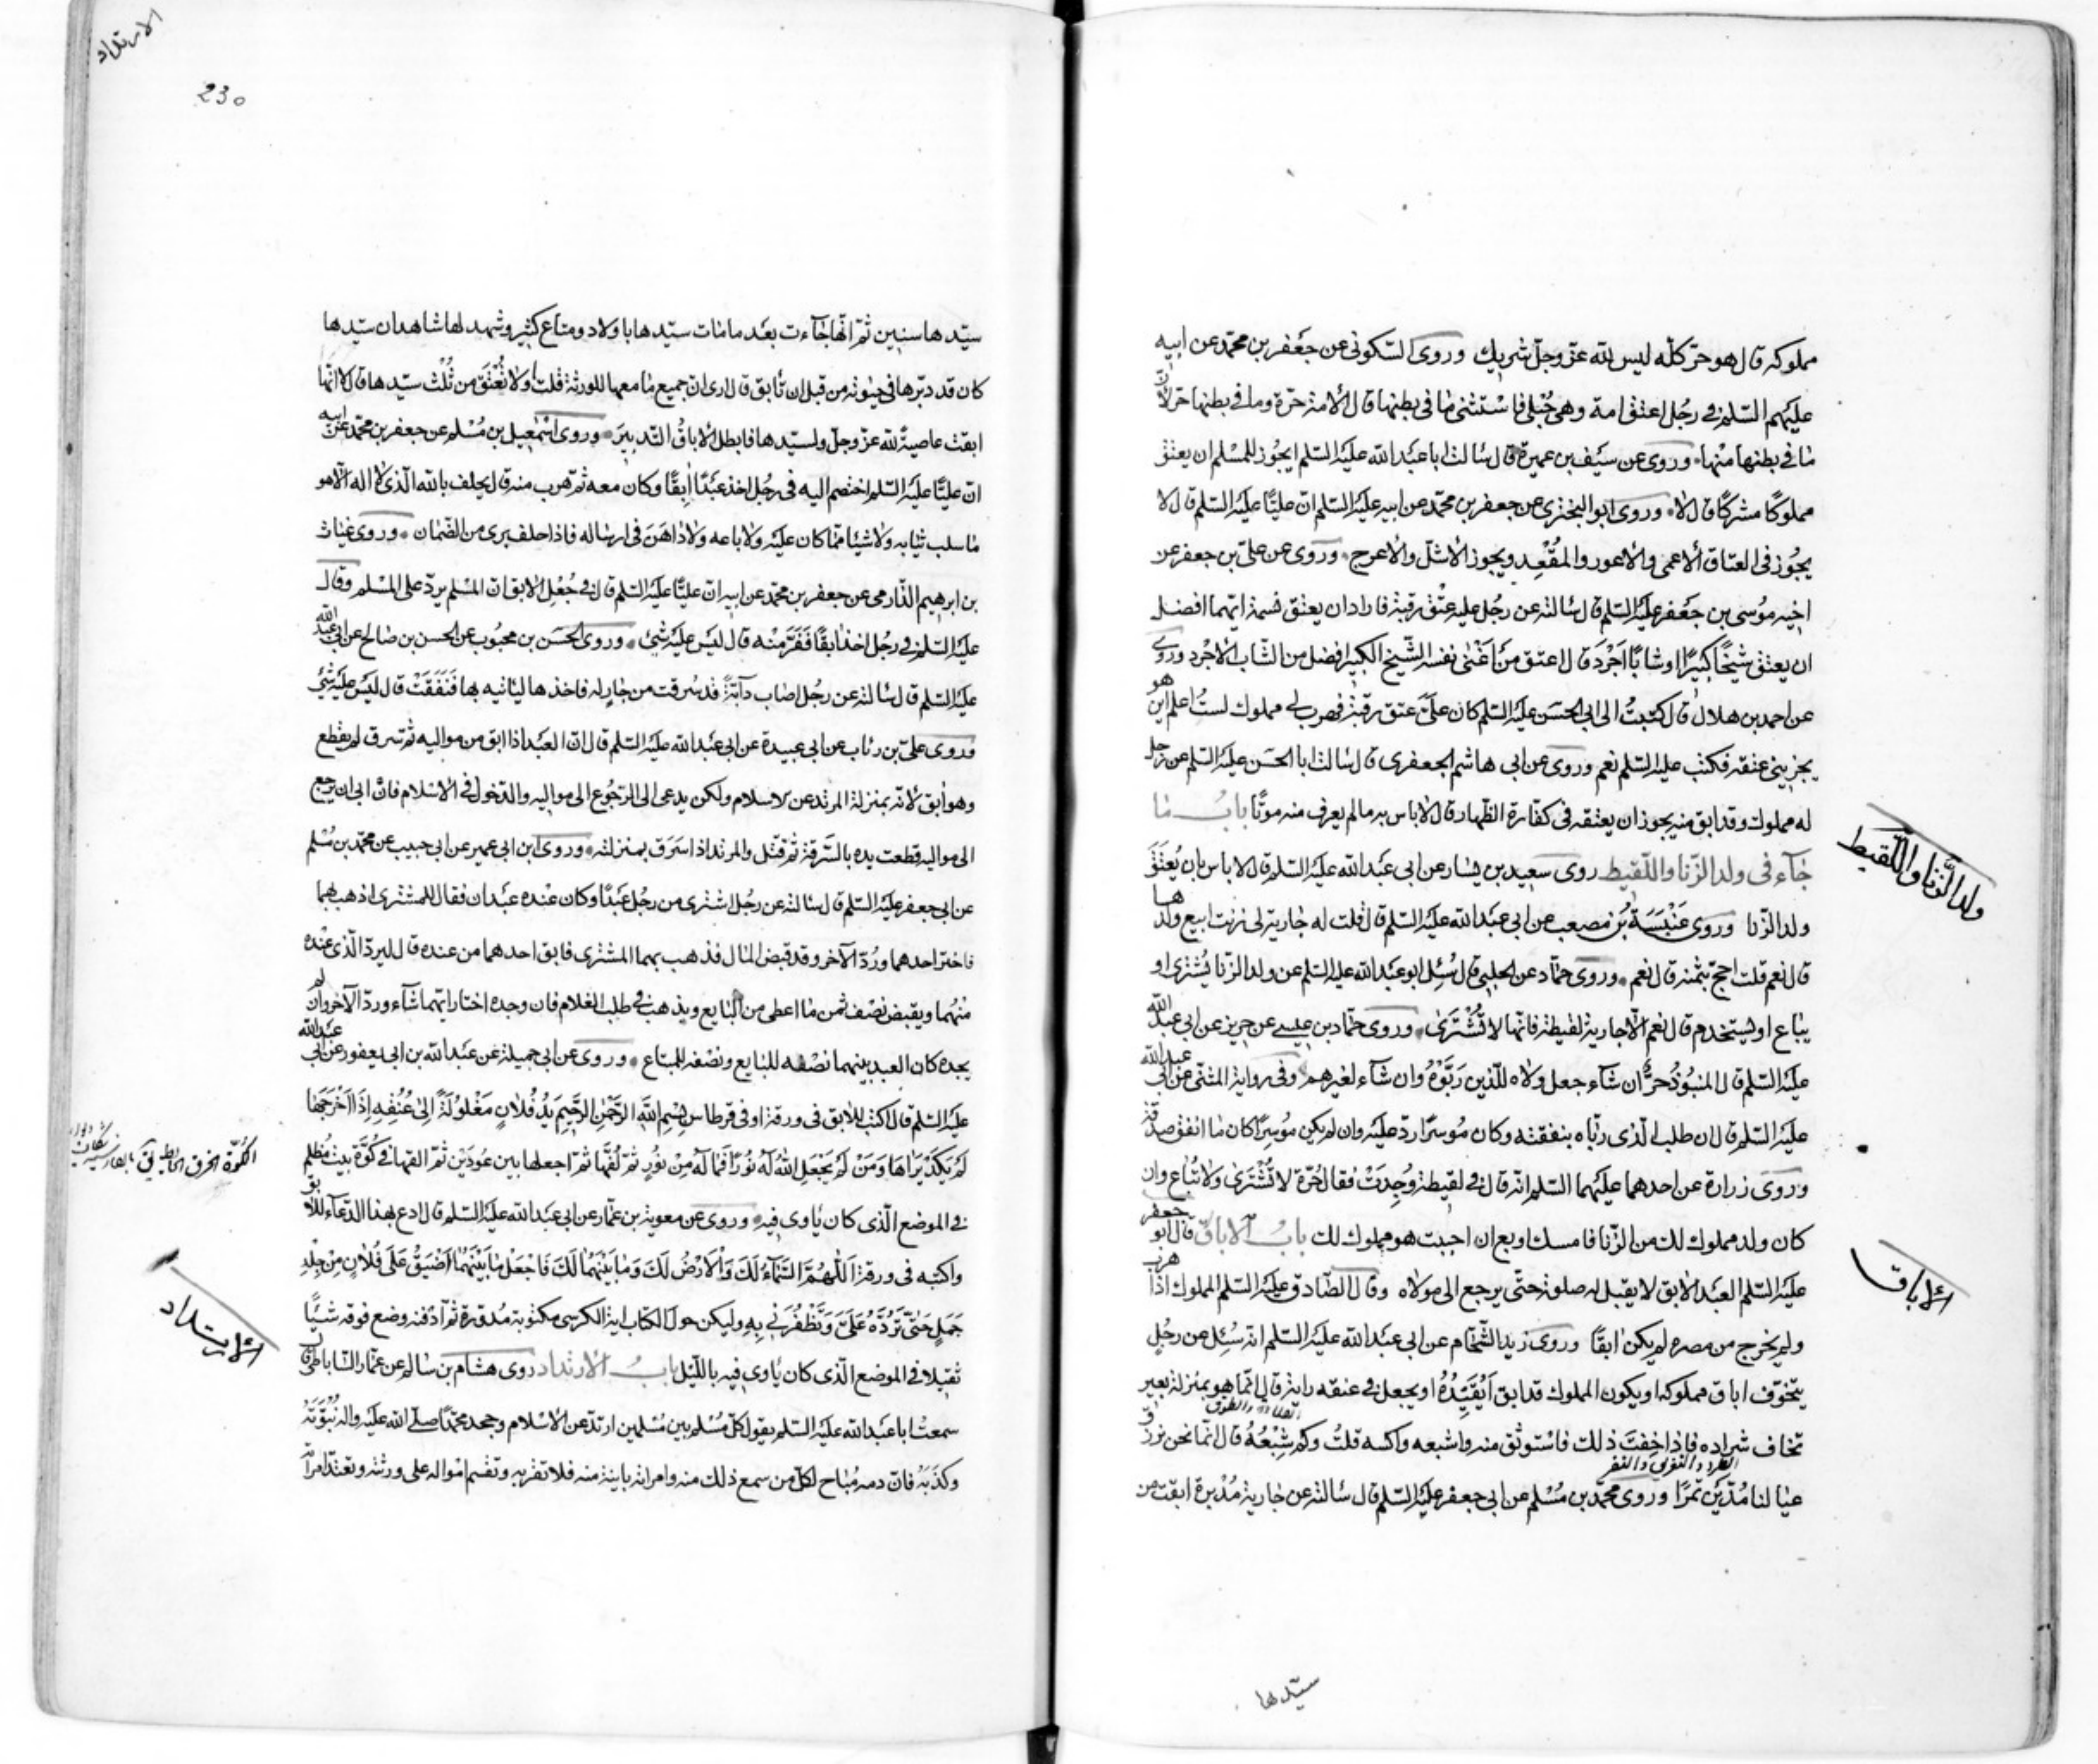 مملوكه قال هو حرّ كلّه ليس لله عزّ وجلّ شريك وروى السّكوني عن جعفر بن محمّد عن ابيه
عليهم السّلم في رجُل اعتق امة وهي حُبْلى فاسْتثنى ما في بطنها قال الامة حرّة وما في بطنها حرّ لانّ
ما في بطنها منْها وروى عن سَيْف بن عميرة قال سالت ابا عبَد الله عليَه السّلم ايجُوز للمسْلم ان يعتق
مملوكًا مشركًا قال لا وروى ابو البختري عن جعفر بن محمّد عن ابيه عليَه السّلم انّ عليًّا عليَه السّلم قال لا
يجُوز في العتاق الاعمى والاعور والمُقْعد ويجوز الاشلّ والاعرج وروى عن علىّ بن جعفر عن
اخيه موُسى بن جعَفر عليَه السّلم قال سالته عن رجُل عليه عتْق رقبة فاراد ان يعتق نسمة ايّهما افضل
ان يعتق شيخًا كبيرًا او شابًّا اجْرَد قال اعتق منَ اغْنى نفسه الشّيخ الكبير افضل من الشّاب الاجْرد وروى
عن احمد بن هلال قال كتبتُ الى ابي الحسَن عليَه السّلم كان علىَّ عتق رقبة فهرب لي مملوك لستُ اعلم اين هو
يجزيني عتقه فكتب عليَه السّلم نعم وروى عن ابى هاشم الجعفرى قال سالت ابا الحسَن عليَه السّلم عن رجل
له مملوك وقد ابق منه يجوز ان يعتقه في كفّارة الظّهار قال لا باس به ما لم يعرف منه موتًا بابُ ما
جآء فى ولد الزّنا واللّقيط روى سعيد بن يسار عن ابى عبَد الله عليَه السّلم قال لا باس بان يُعتَقَ
ولد الزّنا وروى عَنْبَسَةُ بن مصعب عن ابى عبَد الله عليَه السّلم قال قلت له جارية لي زنت ابيع ولدها
قال نعم قلت احجّ بثمنه قال نعم وروى حمّاد عن الحلبي قال سُئِل ابو عبَد الله عليَه السّلم عن ولد الزّنا يُشترى او
يباع او يستخدم قال نعم الّا جارية لقيطة فانّها لا تُشْتَرى وروى حمّاد بن عيسى عن حريز عن ابى عبد الله
عليَه السّلم قال المنبوُذُ حُرٌّ ان شآء جعل ولاه للّذين رَبَّوْهُ وان شآء لغيرهم وفى رواية المثنّى عن ابي عبد الله
عليَه السّلم قال ان طلب الّذى ربّاه بنفقته وكان مُوسرًا ردّ عليَه وان لم يكن موُسِرًا كان ما انفق صدقة
وروَى زرارة عن احدهما عليَهما السّلم انّه قال في لقيطة وُجِدَتْ فقال حُرّة لا تُشْتَرى ولا تُباع وان
كان ولد مملوك لك من الزّنا فامسك او بع ان احببت هو مملوك لك بابُ الاباق قال ابو جعفر
عليَه السّلم العبَد الابق لا يقبل له صلوة حتّى يرجع الى مولاه وقال الصّادق عليَه السّلم المملوك اذا هرب
ولم يخرج من مصره لم يكن ابقًا وروى زيد الشّحّام عن ابى عبَد الله عليَه السّلم انّه سُئِل عن رجُلٍ
يتخوّف اباق مملوكه او يكون المملوك قد ابق اَيُقيّدهُ او يجعل في عنقه راية قال انّما هو بمنزلة بعير
تخاف شراده فاذا خفت ذلك فاسْتوثق منه واشبعه واكسه قلتُ وكم شِبْعُهُ قال انّما نحن نرزق
عيالنا مُدّيَن تمَرًا وروى محمّد بن مُسْلم عن ابى جعفر عليَه السّلم قال سالته عن جارية مُدبرة ابقت من
سيّدها
ولد الزّنا واللّقيط
الاباق
الارتداد
230
سيّدها سنين ثمّ انّها جآءت بعَد ما مات سيّدها باولاد ومتاع كثير وشهد لها شاهدان سيّدها
كان قد دبّرها في حيوته من قبل ان تابق قال ارى انّ جميع ما معها للورثة قلت ولا تُعْتَقَ من ثُلْث سيّدها قال لا انّها
ابقت عاصيةً لله عزّ وجلّ ولسيّدها فابطل الاباقُ التّدبيرَ وروى اسْمٰعيل بن مُسْلم عن جعفر بن محمّد عن ابيه
انّ عليًّا عليَه السّلم اختصم اليه فى رجُل اخذ عبَدًا ابقًا وكان معه ثمّ هرب منه قال يحلف بالله الّذى لا اله الّا هو
ما سلب ثيابه ولا شيئا ممّا كان عليَه ولا باعه ولا داهَنَ فى ارساله فاذا حلف برى من الضّمان وروى غياث
بن ابرهيم الدّارمى عن جعفر بن محمّد عن ابيه انّ عليًّا عليَه السّلم قال في جُعْل الابق انّ المسْلم يردّ على المسْلم وقال
عليَه السّلم في رجُل اخذ ابقًا فَفَرَّ مِنْه قال ليَس عليَه شئ وروى الحسَن بن محبُوب عن الحسن بن صالح عن ابي عبد الله
عليَه السّلم قال سالته عن رجُل اصاب دآبّةً قد سُرقت من جارٍ له فاخذها لياتيه بها فَنَفَقَتْ قال ليَس عليَه شئ
وروى علىّ بن رئاب عن ابى عبيدة عن ابى عبَد الله عليَه السّلم قال انّ العبَد اذا ابق من مواليه ثمّ سرق لم يقطع
وهو ابق لانّه بمنزلة المرتد عن الاسلام ولكن يدعى الى الرّجُوع الى مواليه والدّخول في الاسْلام فانْ ابى ان يرجع
الى مواليه قطعت يده بالسّرقة ثمّ قتل والمرتد اذا سَرَق بمنزلته وروى ابن ابى عمير عن ابى حبيب عن محمّد بن مُسْلم
عن ابى جعفر عليَه السّلم قال سالته عن رجُل اشترى من رجُل عبَدًا وكان عنْده عبَدان فقال للمشترى اذهب بهما
فاختر احدهما ورُدّ الآخر وقد قبض المال فذهب بهما المشترى فابق احدهما من عنده قال ليردّ الّذى عنْده
منْهُما ويقبض نصْف ثمن ما اعطى من البايع ويذهب في طلب الغلام فان وجده اختار ايّهما شآء وردّ الآخر وان لم
يجده كان العبد بينهما نصْفه للبايع ونصْفه للمبتاع وروى عن ابى جميلة عن عبَد الله بن ابى يعفور عن ابي عبد الله
عليَه السّلم قال اكتب للابق فى ورقة او فى قرطاس بِسْمِ اللهِ الرَّحْمٰنِ الرَّحِيمِ يَدُ فُلانٍ مَغْلوُلَةٌ اِلى عُنُقِهِ اِذا اَخْرَجَها
لَمْ يَكَدْ يَراها وَمَنْ لَمْ يَجْعَلِ اللهُ لَهُ نوُرًا فَما لَهُ مِنْ نوُرٍ ثمّ لُفَّها ثمّ اجعلها بين عوُدَيْن ثمّ القها في كُوَّة بيت مُظلم
في الموضع الّذى كان ياوى فيه وروى عن معوية بن عمّار عن ابى عبَد الله عليَه السّلم قال ادع بهذا الدّعآء للابق
واكتبه فى ورقة اَللّهُمَّ السَّمآءُ لَكَ وَالْاَرْضُ لَكَ وَما بَيْنَهُما لَكَ فَاجْعَلْ ما بَيْنَهُما اَضْيَقَ عَلى فُلانٍ مِنْ جِلْدِ
جَمَلٍ حَتّى تَرُدَّهُ عَلَىَّ وَتُظْفِرَني بِهِ وليكن حول الكتاب اية الكرسى مكتوبة مُدوّرة ثمّ ادْفنه وضع فوقه شيْئًا
ثقيلا في الموضع الّذى كان ياوى فيه باللّيْل بابُ الارتداد روى هشام بن سالم عن عمّار السّاباطى قال
سمعتُ ابا عبَد الله عليَه السّلم يقول كلّ مُسْلم بين مُسْلمين ارتدّ عن الاسْلام وجحد محمّدًا صلّى الله عليَه واله نُبُوَّتَهُ
وكذّبَهُ فانّ دمه مُباح لكلّ من سمع ذلك منه وامراته باينة منه فلا تقربه وتقسم امْواله على ورثته وتعتدّ امراته
الارتداد